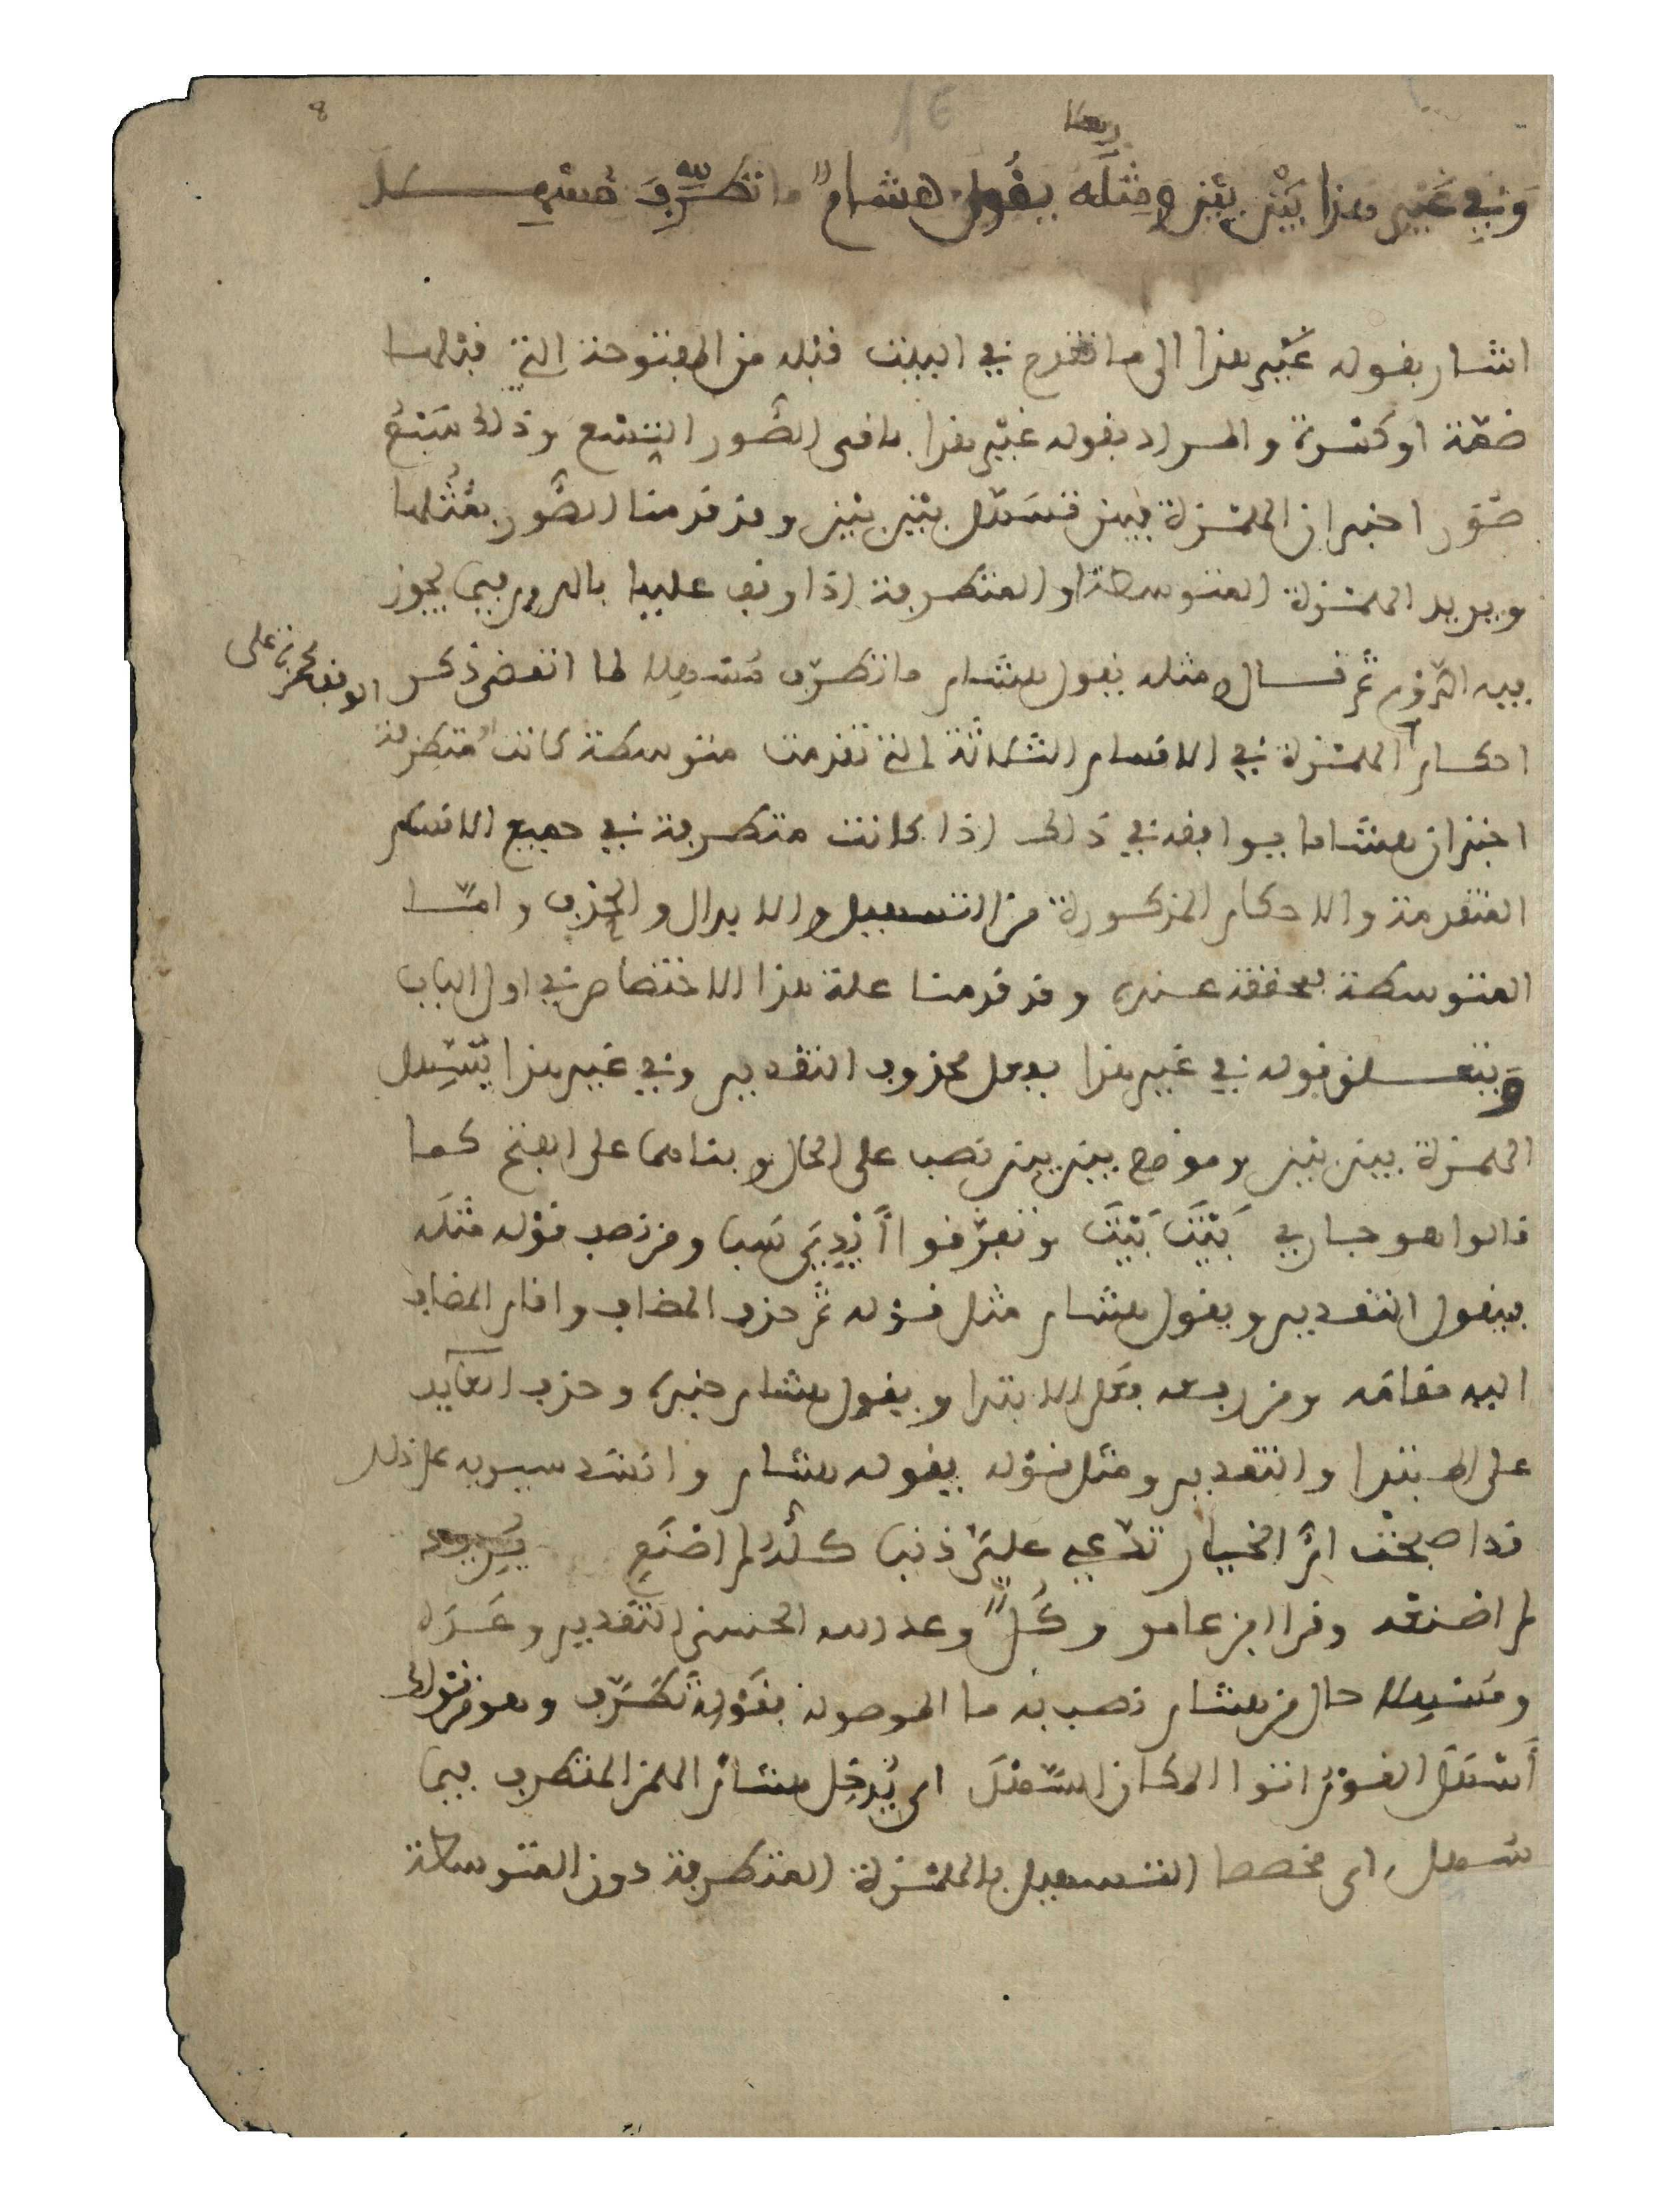 8
16
معا
وَفِي غَيْرِ هذا بَيْنَ بَيْنَ وَمِثْلُه يقُولُ هشامٌ ما تَطَرَّفَ مُسْهِلا
اشار بقوله غير هذا الى ما تقدم في البيت قبله من المفتوحة التي قبلها
ضمة او كسرة والمراد بقوله غير هذا باقي الصُّور التسع وذلك سَبْعُ
صُوَر اخبر ان الهمزة فيهن تسهّل بين بين وقد قدمنا الصُّوَر بمُثُلها
ويريد الهمزة المتوسطة او المتطرفة اذا وقف عليها بالروم فيما يجوز
فيه الرَّوْم ثم قال ومثله يقول هشام ما تطرّف مُسْهِلا لما انقضى ذكر
الوقف لحمزة على
احكام الهمزة في الاقسام الثلاثة التي تقدمت متوسطة كانت او مُتَطرفة
اخبر ان هشاما يوافقه في ذلك اذا كانت متطرفة في جميع الاقسام
المتقدمة والاحكام المذكورة من التسهيل والابدال والحذف وامّا
المتوسطة فمحققة عنده وقد قدمنا علة هذا الاختصاص في اول الباب
ويتعلق قوله في غير هذا بفعل محذوف التقدير وفي غير هذا تُسَهَّل
الهمزة بين بين وموضع بين بين نصب على الحال وبناهما على الفتح كما
قالوا هو جاري بَيْتَ بَيْتَ وتفرّقوا أَيْدِيَ سَبا ومن نصب قوله مثلَه
فيقول التقدير ويقول هشام مثل قوله ثم حذف المضاف واقام المضاف
اليه مقامَه ومن رفعه فعلى الابتدا ويقول هشام خبره وحذف العايد
على المبتدا والتقدير ومثل قوله يقوله هشام وانشد سيبويه على ذلك
قد اصبحَتْ امُّ الخيار تدّعي عليَّ ذنبا كلُّه لم اصْنَعِ يُريد
لم اصنعه وقرا ابن عامر وكُلٌّ وعد الله الحسنى التقدير وعَدَه
ومُسْهِلا حال من هشام نصب به ما الموصولة بقوله تَطَرَّف وهو من قولك
أَسْهَلَ القومُ اتوا المكان السَّهْلَ اي يُدخِل هشامٌ الهمز المتطرف فيما
سهل اي مخصصا التسهيل بالهمزة المتطرفة دون المتوسطة